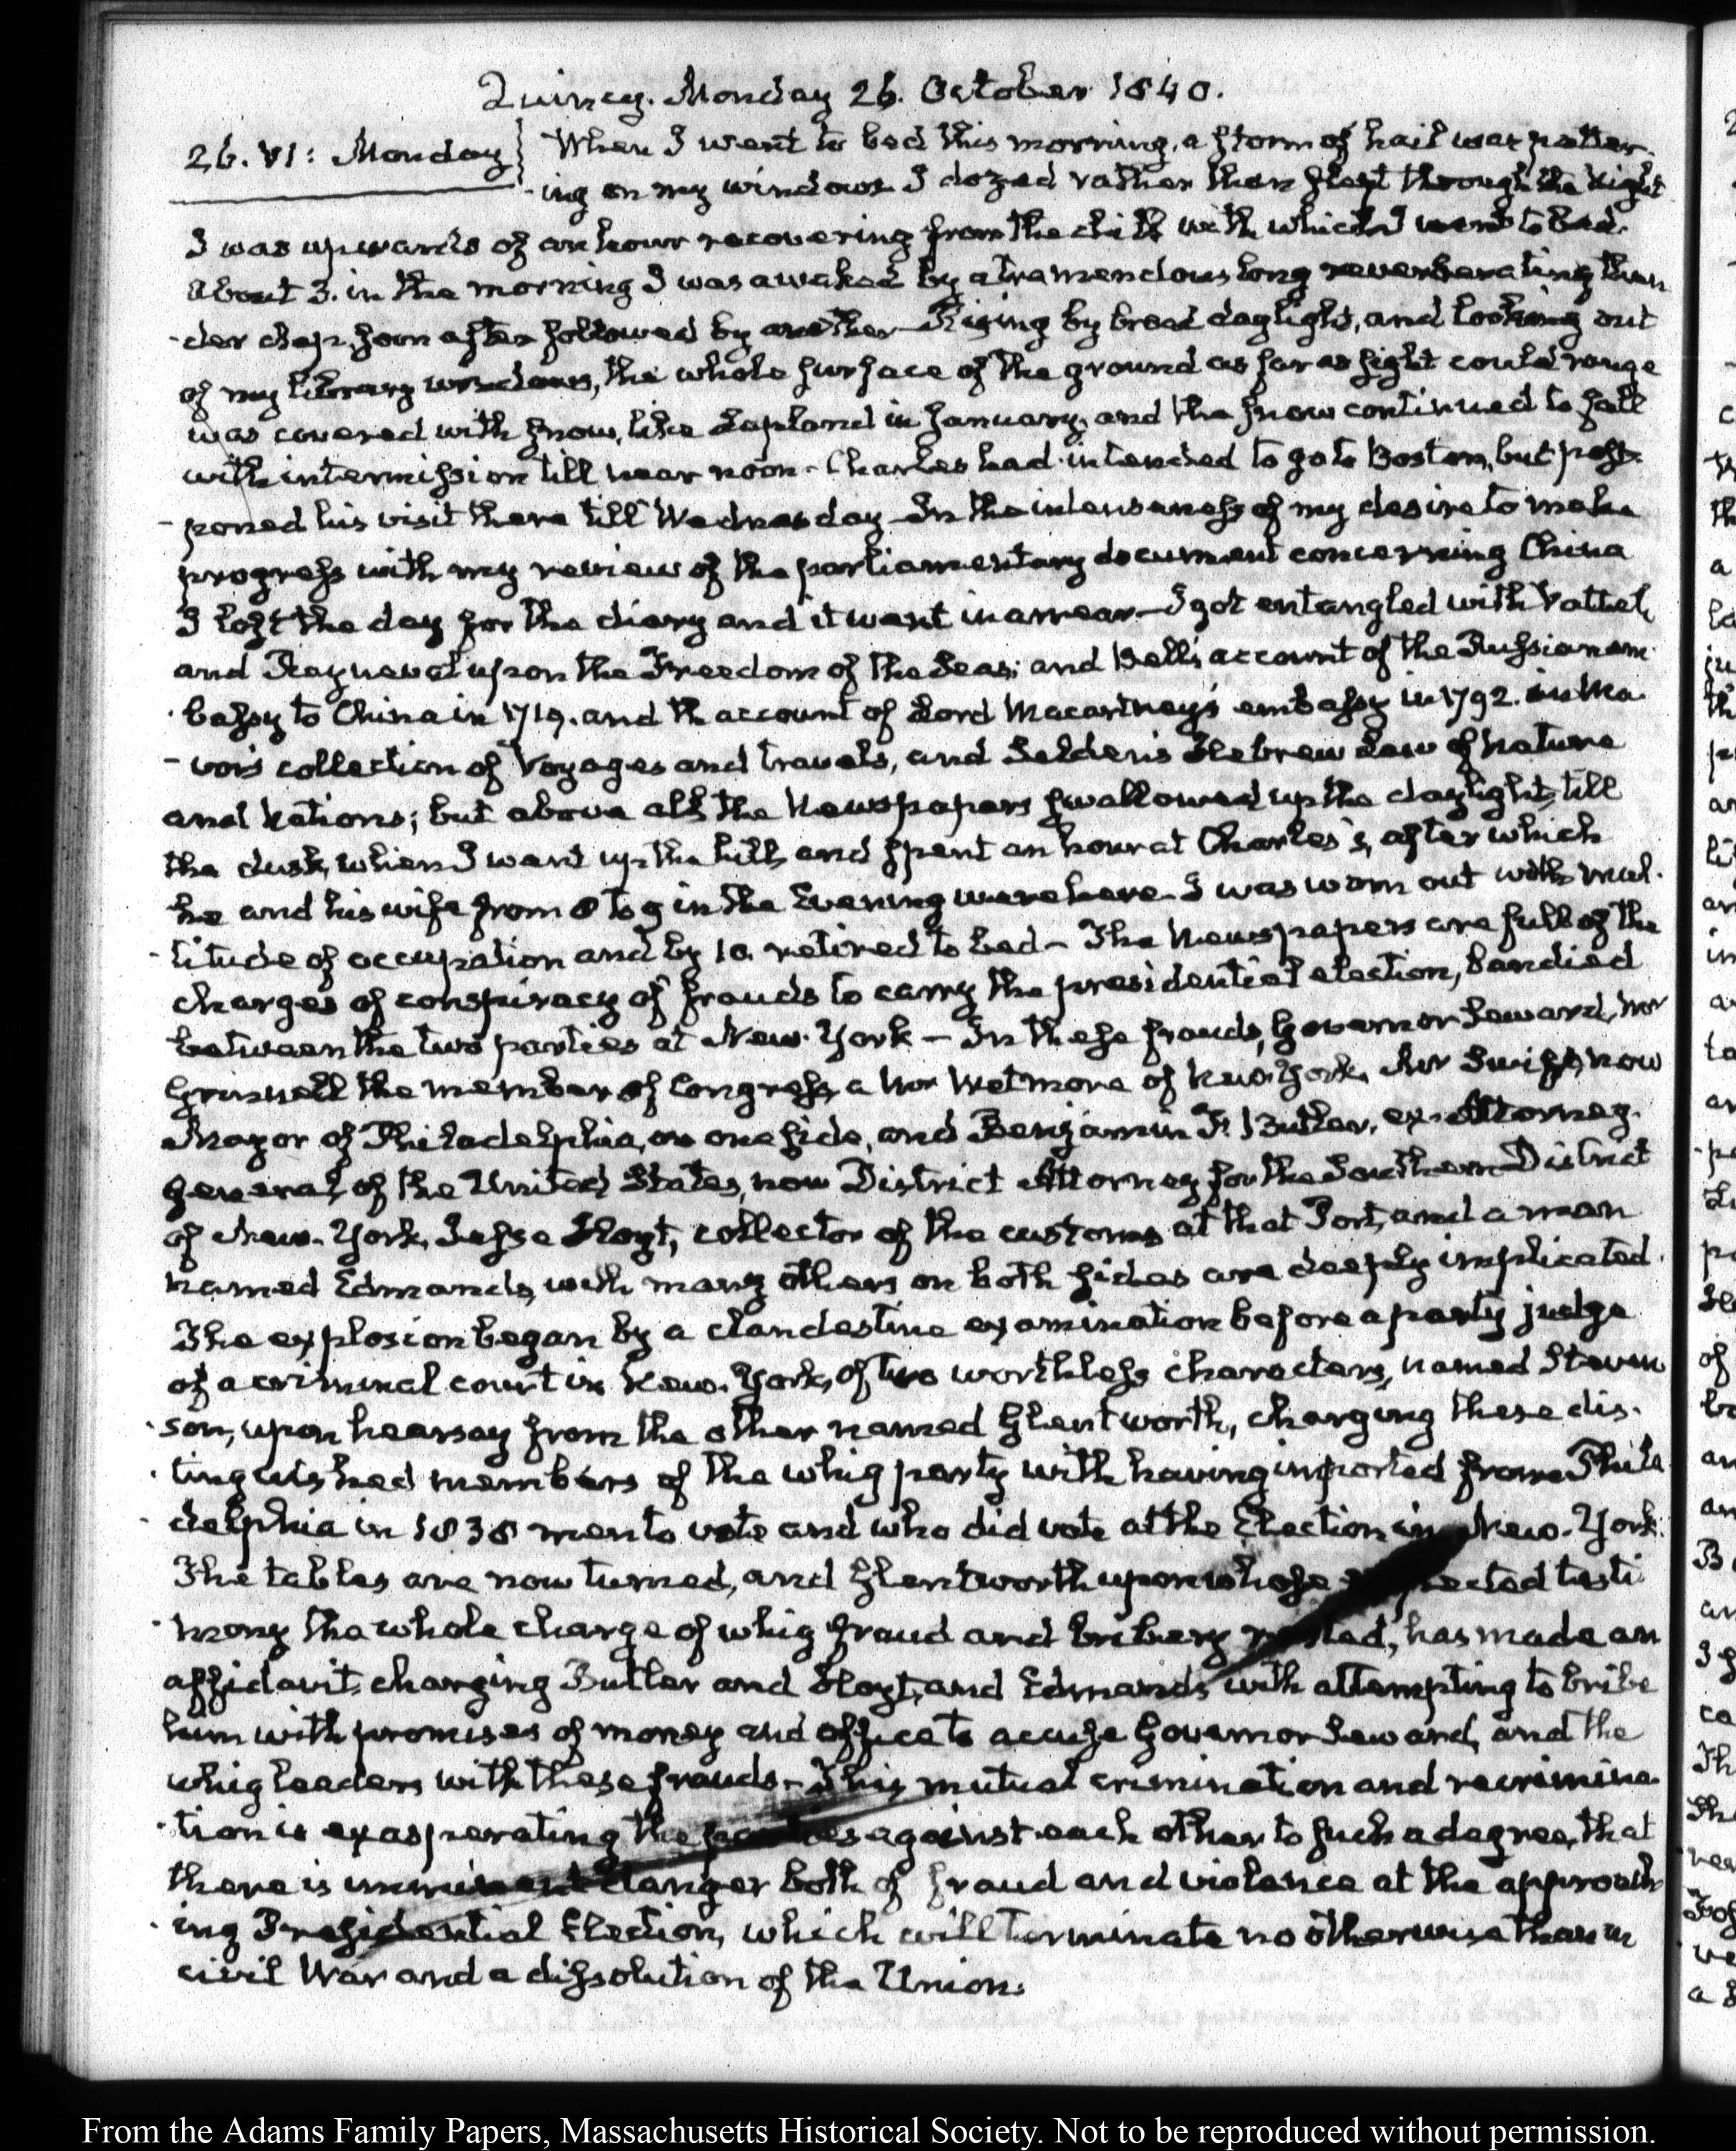 Quincy. Monday 26. October 1840.
26. VI: Monday} When I went to bed this morning, a storm of hail was patter-
-ing on my windows. I dozed rather than slept through the Night
I was upwards of an hour recovering from the chill with which I went to bed.
About 3. in the morning I was awaked by a tremendous long reverberating thun
-der clap, soon after followed by another— Rising by broad daylight, and looking out
of my library windows, the whole surface of the ground as far as sight could range
was covered with snow, like Lapland in January, and the snow continued to fall
with intermission till near noon— Charles had intended to go to Boston, but post-
-poned his visit there till Wednesday— In the intenseness of my desire to make
progress with my review of the parliamentary document concerning China
I lost the day for the diary and it went in arrear— I got entangled with Vattel,
and Rayneval upon the Freedom of the Seas; and Bell's account of the Russian em-
-bassy to China in 1719. and the account of Lord Macartney's embassy in 1792. in Ma-
-vor's collection of Voyages and travels, and Selden's Hebrew Law of Nature
and Nations; but above all the Newspapers swallowed up the daylight, till
the dusk, when I went up the hill, and spent an hour at Charles's, after which
he and his wife from 8 to 9 in the Evening were here. I was worn out with mul-
-titude of occupation and by 10. retired to bed— The Newspapers are full of the
charges of conspiracy of frauds to carry the presidential election, bandied
between the two parties at New-York— In these frauds, Governor Seward, Mr
Grinnell the member of Congress, a Mr Wetmore of New-York, Mr Swift, now
Mayor of Philadelphia, on one side, and Benjamin F. Butler, ex-Attorney-
general of the United States, now District Attorney for the Southern District
of New-York, Jesse Hoyt, collector of the customs at that Port, and a man
named Edmonds, with many others on both sides are deeply implicated.
The explosion began by a clandestine examination before a party judge
of a criminal court in New-York, of two worthless characters, named Steven
-son, upon hearsay from the other named Glentworth, charging these dis-
-tinguished members of the whig party with having imported from Phila
-delphia in 1838 men to vote and who did vote at the Election in New-York.
The tables are now turned, and Glentworth upon whose expected testi
-mony the whole charge of whig fraud and bribery rested, has made an
affidavit, charging Butler and Hoyt, and Edmonds with attempting to bribe
him with promises of money and office to accuse Governor Seward, and the
whig leaders with these frauds— This mutual crimination and recrimina
-tion is exasperating the parties against each other to such a degree, that
there is imminent danger both of fraud and violence at the approach
-ing Presidential Election, which will terminate no otherwise than in
civil War and a dissolution of the Union.
From the Adams Family Papers, Massachusetts Historical Society. Not to be reproduced without permission.